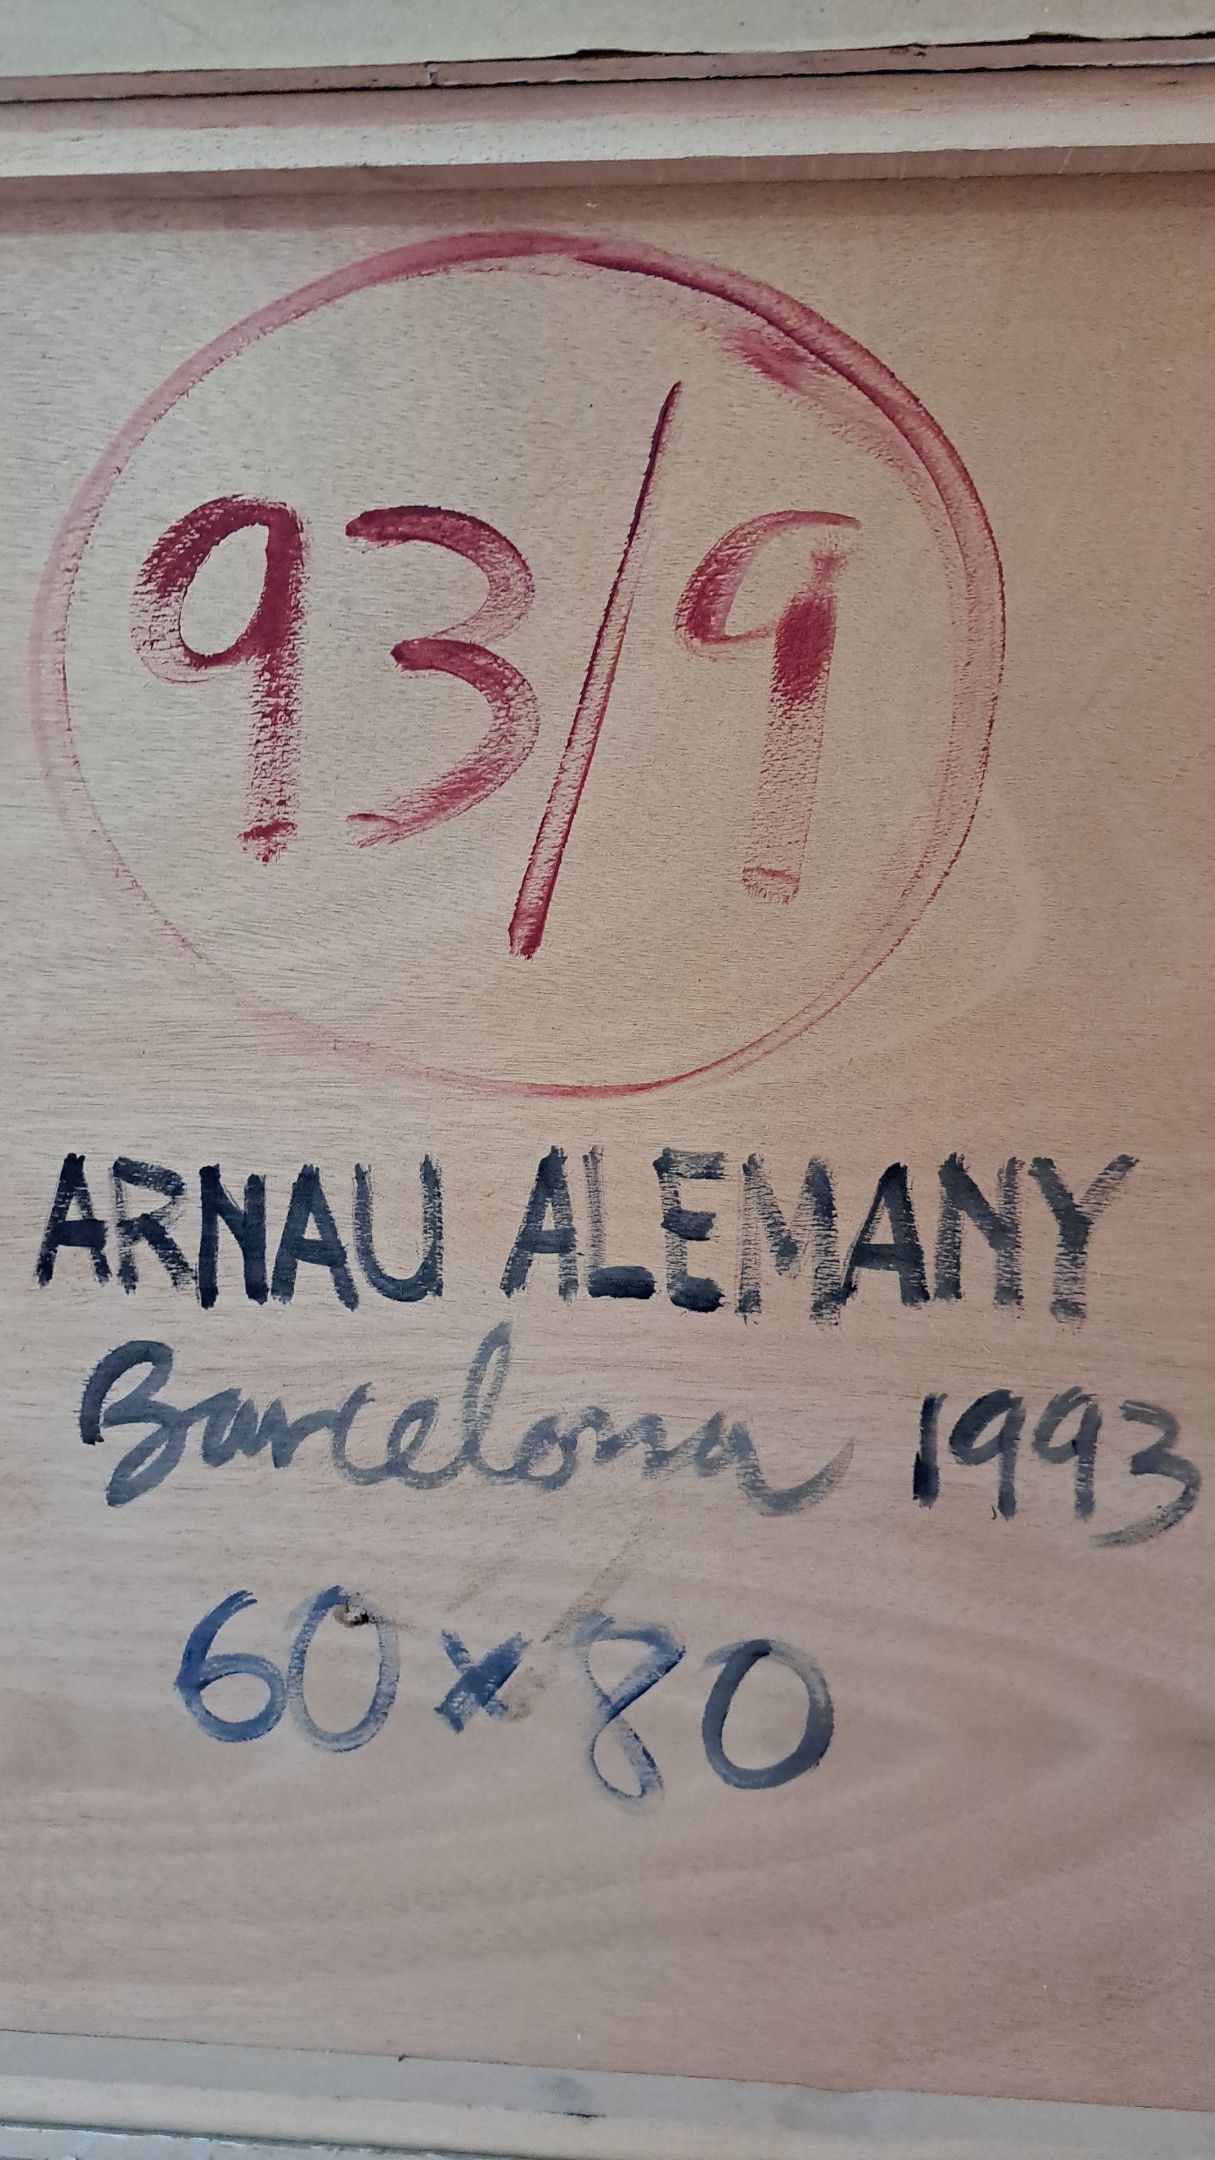 93/9
ARNAU ALEMANY
Barcelona 1993
60x80